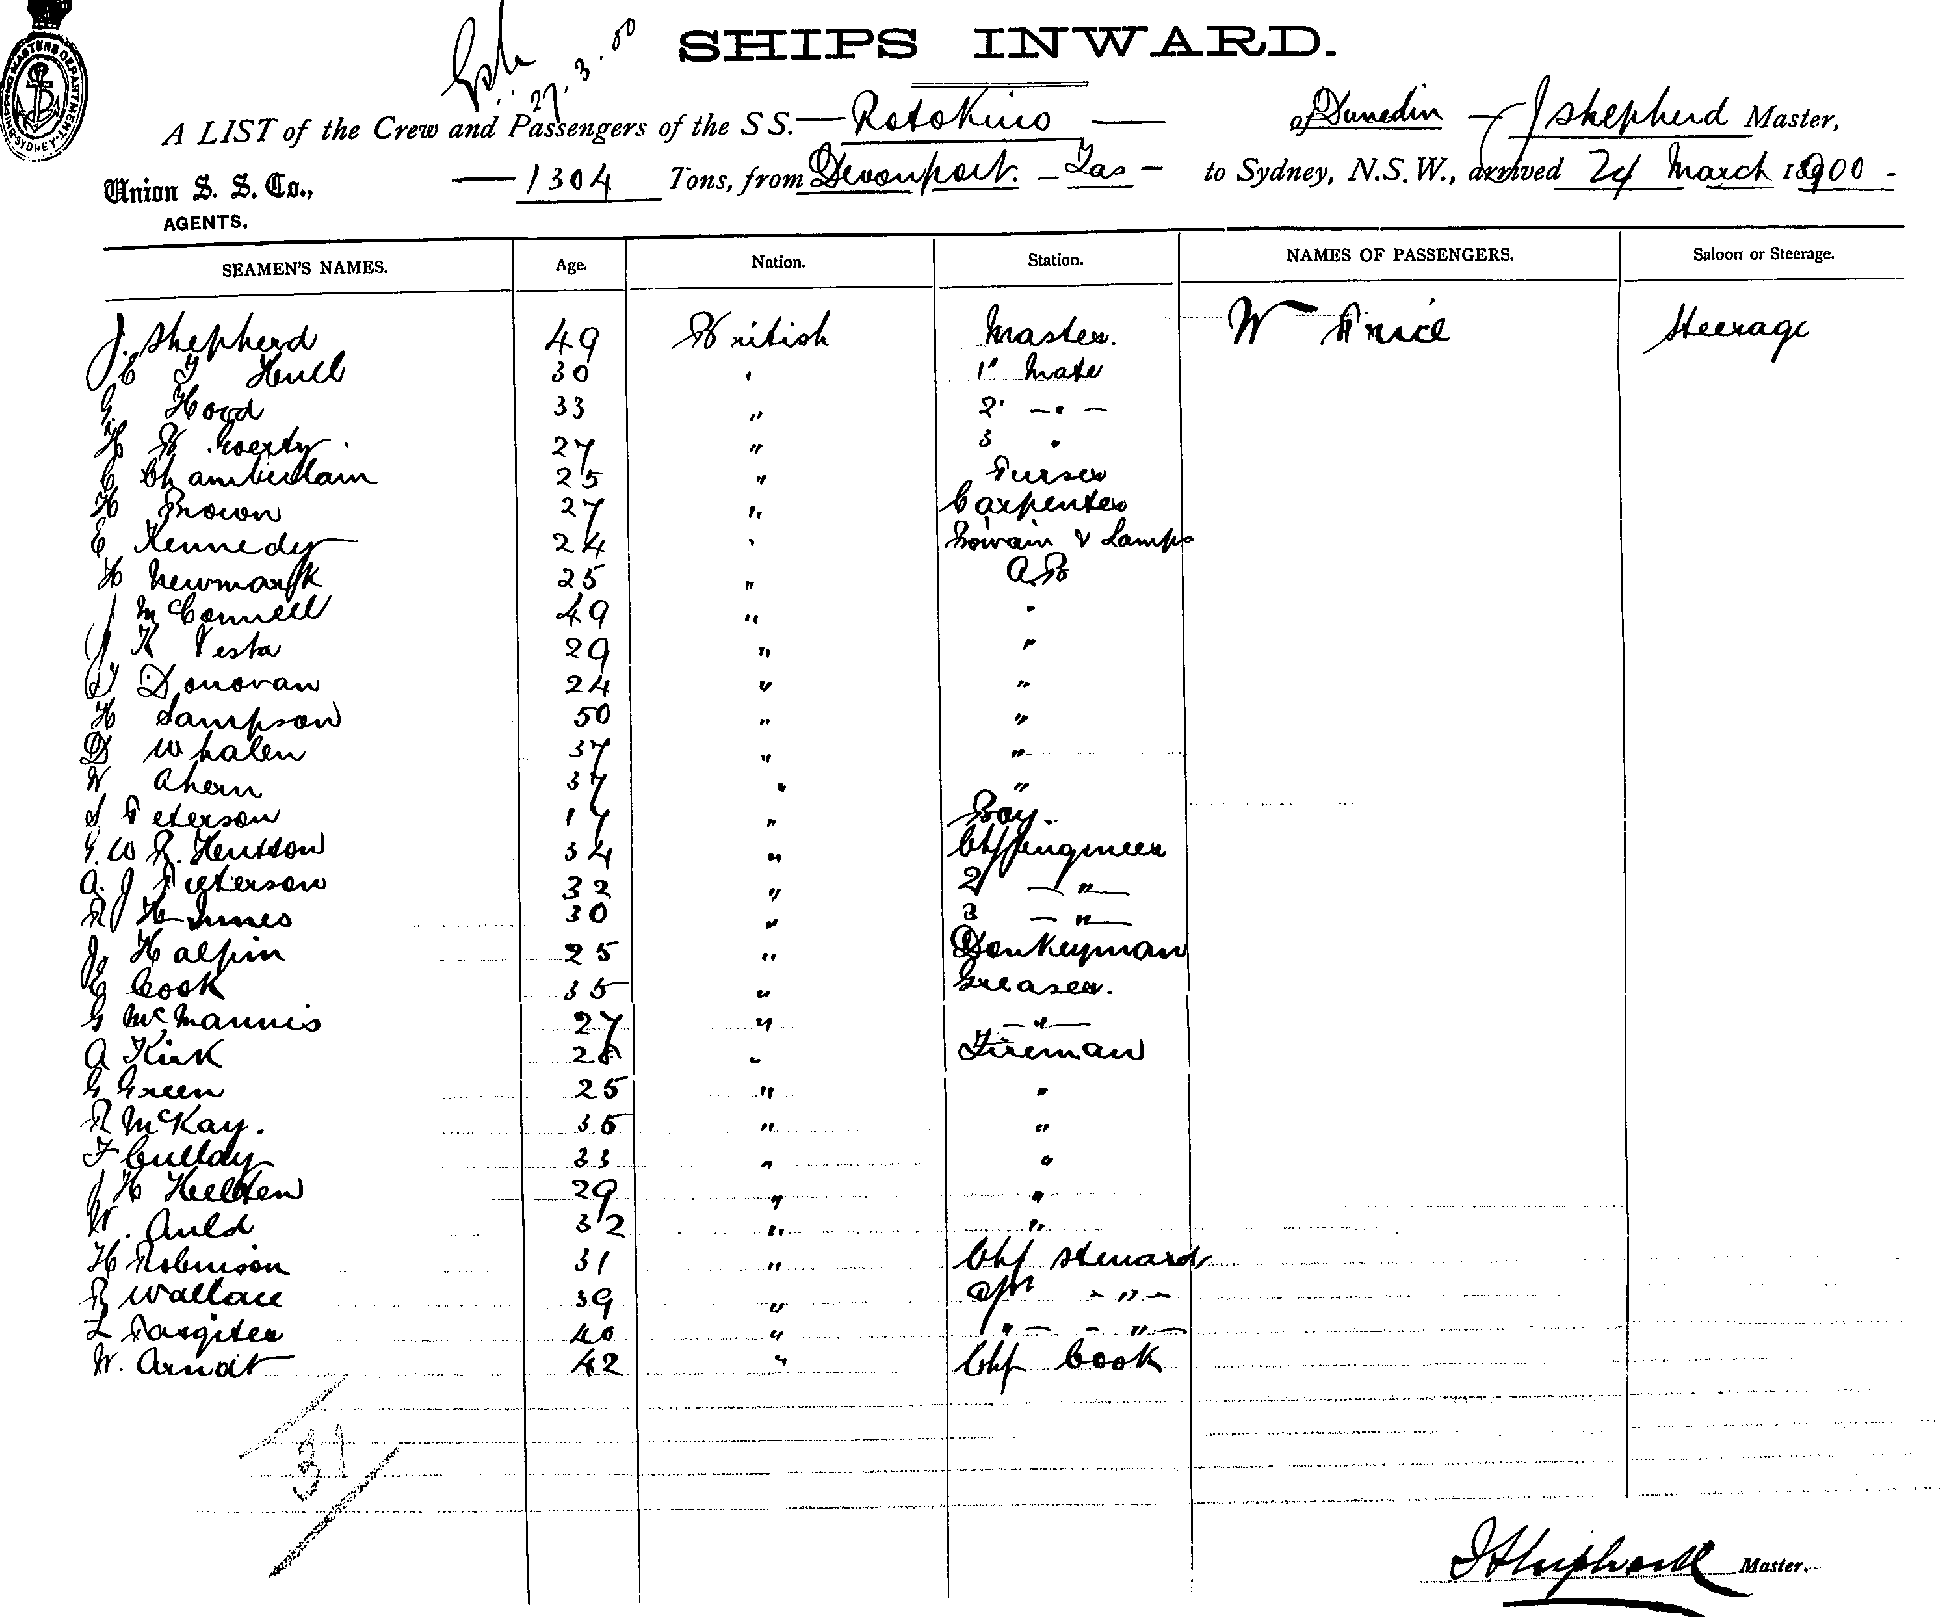 SHIPS INWARD.
27.3.00
A LIST of the Crew and Passengers of the SS. — Rotokino — of Dunedin — J Shepherd Master,
Union S. S. Co., AGENTS. — 1304 Tons, from Devonport. — Tas — to Sydney, N.S.W., arrived 24 March 1900 -
SEAMEN'S NAMES. Age. Nation. Station. NAMES OF PASSENGERS. Saloon or Steerage.
J. Shepherd 49 British Master. W Price Steerage
30 " 1st Mate
G. Hood 33 " 2 — " —
H B 27 " 3 "
C Chamberlain 25 " Purser
H Brown 27 " Carpenter
E Kennedy 24 " & Lamps
H Newmarsk 25 " A.B
J McConnell 49 " "
J K Vesta 29 " "
Donovan 24 " "
H Sampson 50 " "
D Whalen 37 " "
W Ahern 37 " "
Peterson 17 " Boy.
G. W R. 34 " Chf Engineer
A. J Pieterson 32 " 2 — " —
R H Innes 30 " 3 — " —
J. Halpin 25 " Donkeyman
E Cook 35 " Greaser.
G McMannis 27 " — " —
A Kirk " Fireman
G Green 25 " "
R McKay. 35 " "
F 33 " "
J H 29 " "
W. Auld 32 " "
H Robinson 31 " Chf Steward
R Wallace 39 " - " -
L Pargiter 40 " " — - " —
W. Arndt 42 " Chf Cook
31
J Shepherd Master.